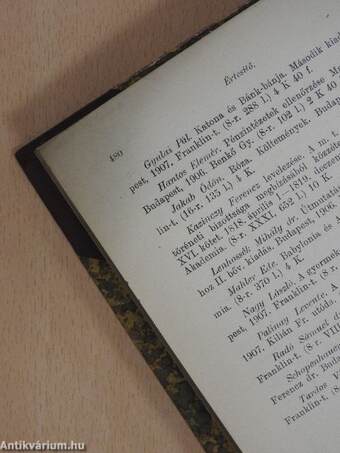 480
Értesitő.
Gyulai Pál. Katona és Bánk-bánja. Második kiad
pest, 1907. Franklin-t. (8-r. 288 l.) 4 K 40 f.
Hantos Elemér. Pénzintézetek ellenőrzése
Budapest, 1906. Benkő Gy. (8-r. 102 l.) 2 K 40
Jakab Ödön. Róza. Költemények. Budap
lin-t. (16-r. 135 l.) 4 K.
Kazinczy Ferencz levelezése. A m. t.
történeti bizottsága megbízásából közzéte
XVI. kötet. 1818. április 1—1819. decem
Akademia. (8-r. XXXI, 652 l.) 10 K.
Lenhossék Mihály dr. Útmutatá
hoz II. bőv. kiadás. Budapest, 1906.
Mahler Ede. Babylonia és
mia. (8-r. 370 l.) 4 K.
Nagy László. A gyermek
pest, 1907. Franklin-t. (8 r.
Palinay Levente.
1907. Kilián Fr. utóda.
Radó Sámuel
Franklin-t. (8 r. VII
Schopenhaue
Ferencz dr. Buda
Tardos
Franklin-t. (8
Antikvárium.hu